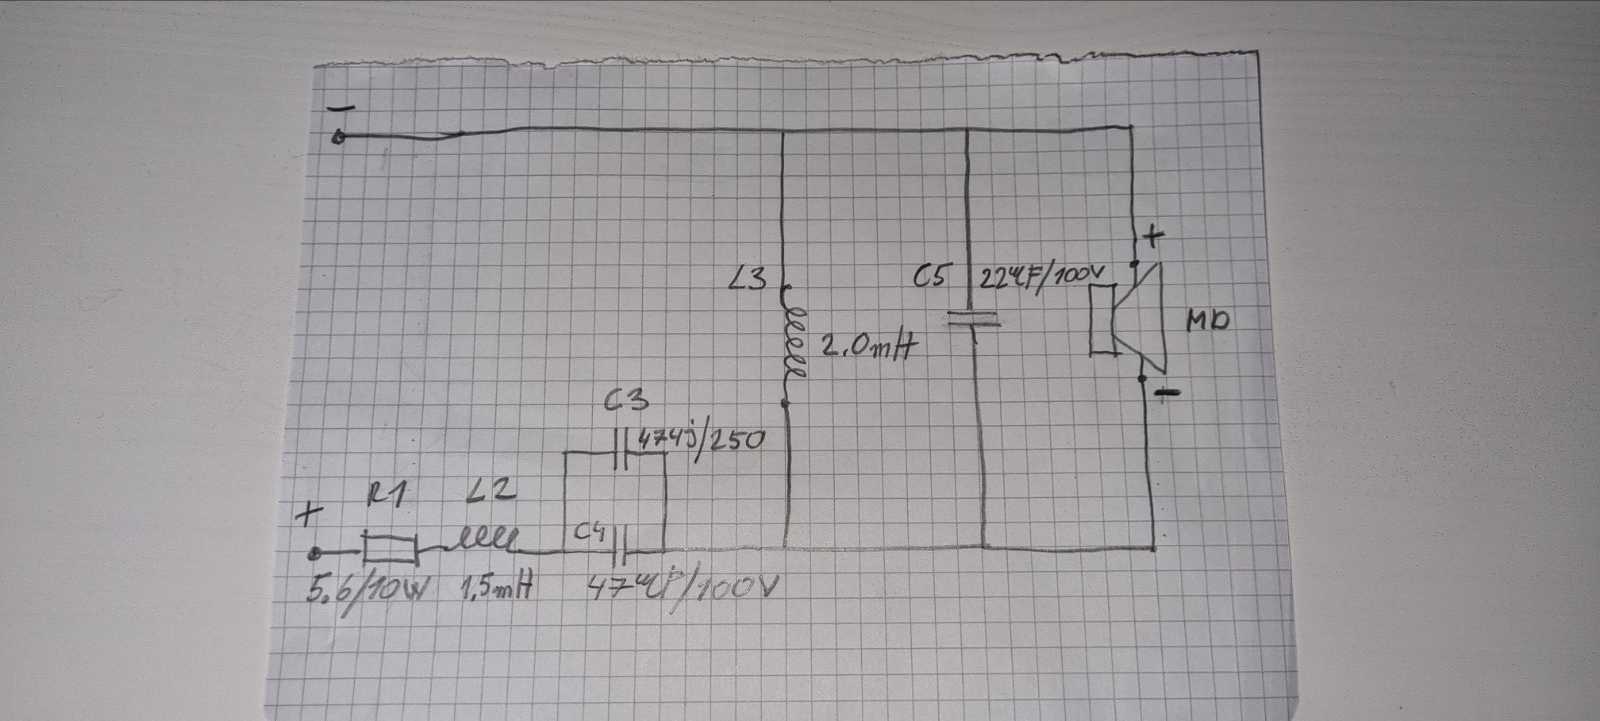 −
+
L3
C5
22uF/100V
MD
2.0mH
−
C3
474j/250
R1
L2
+
C4
5.6/10W
1,5mH
47uF/100V